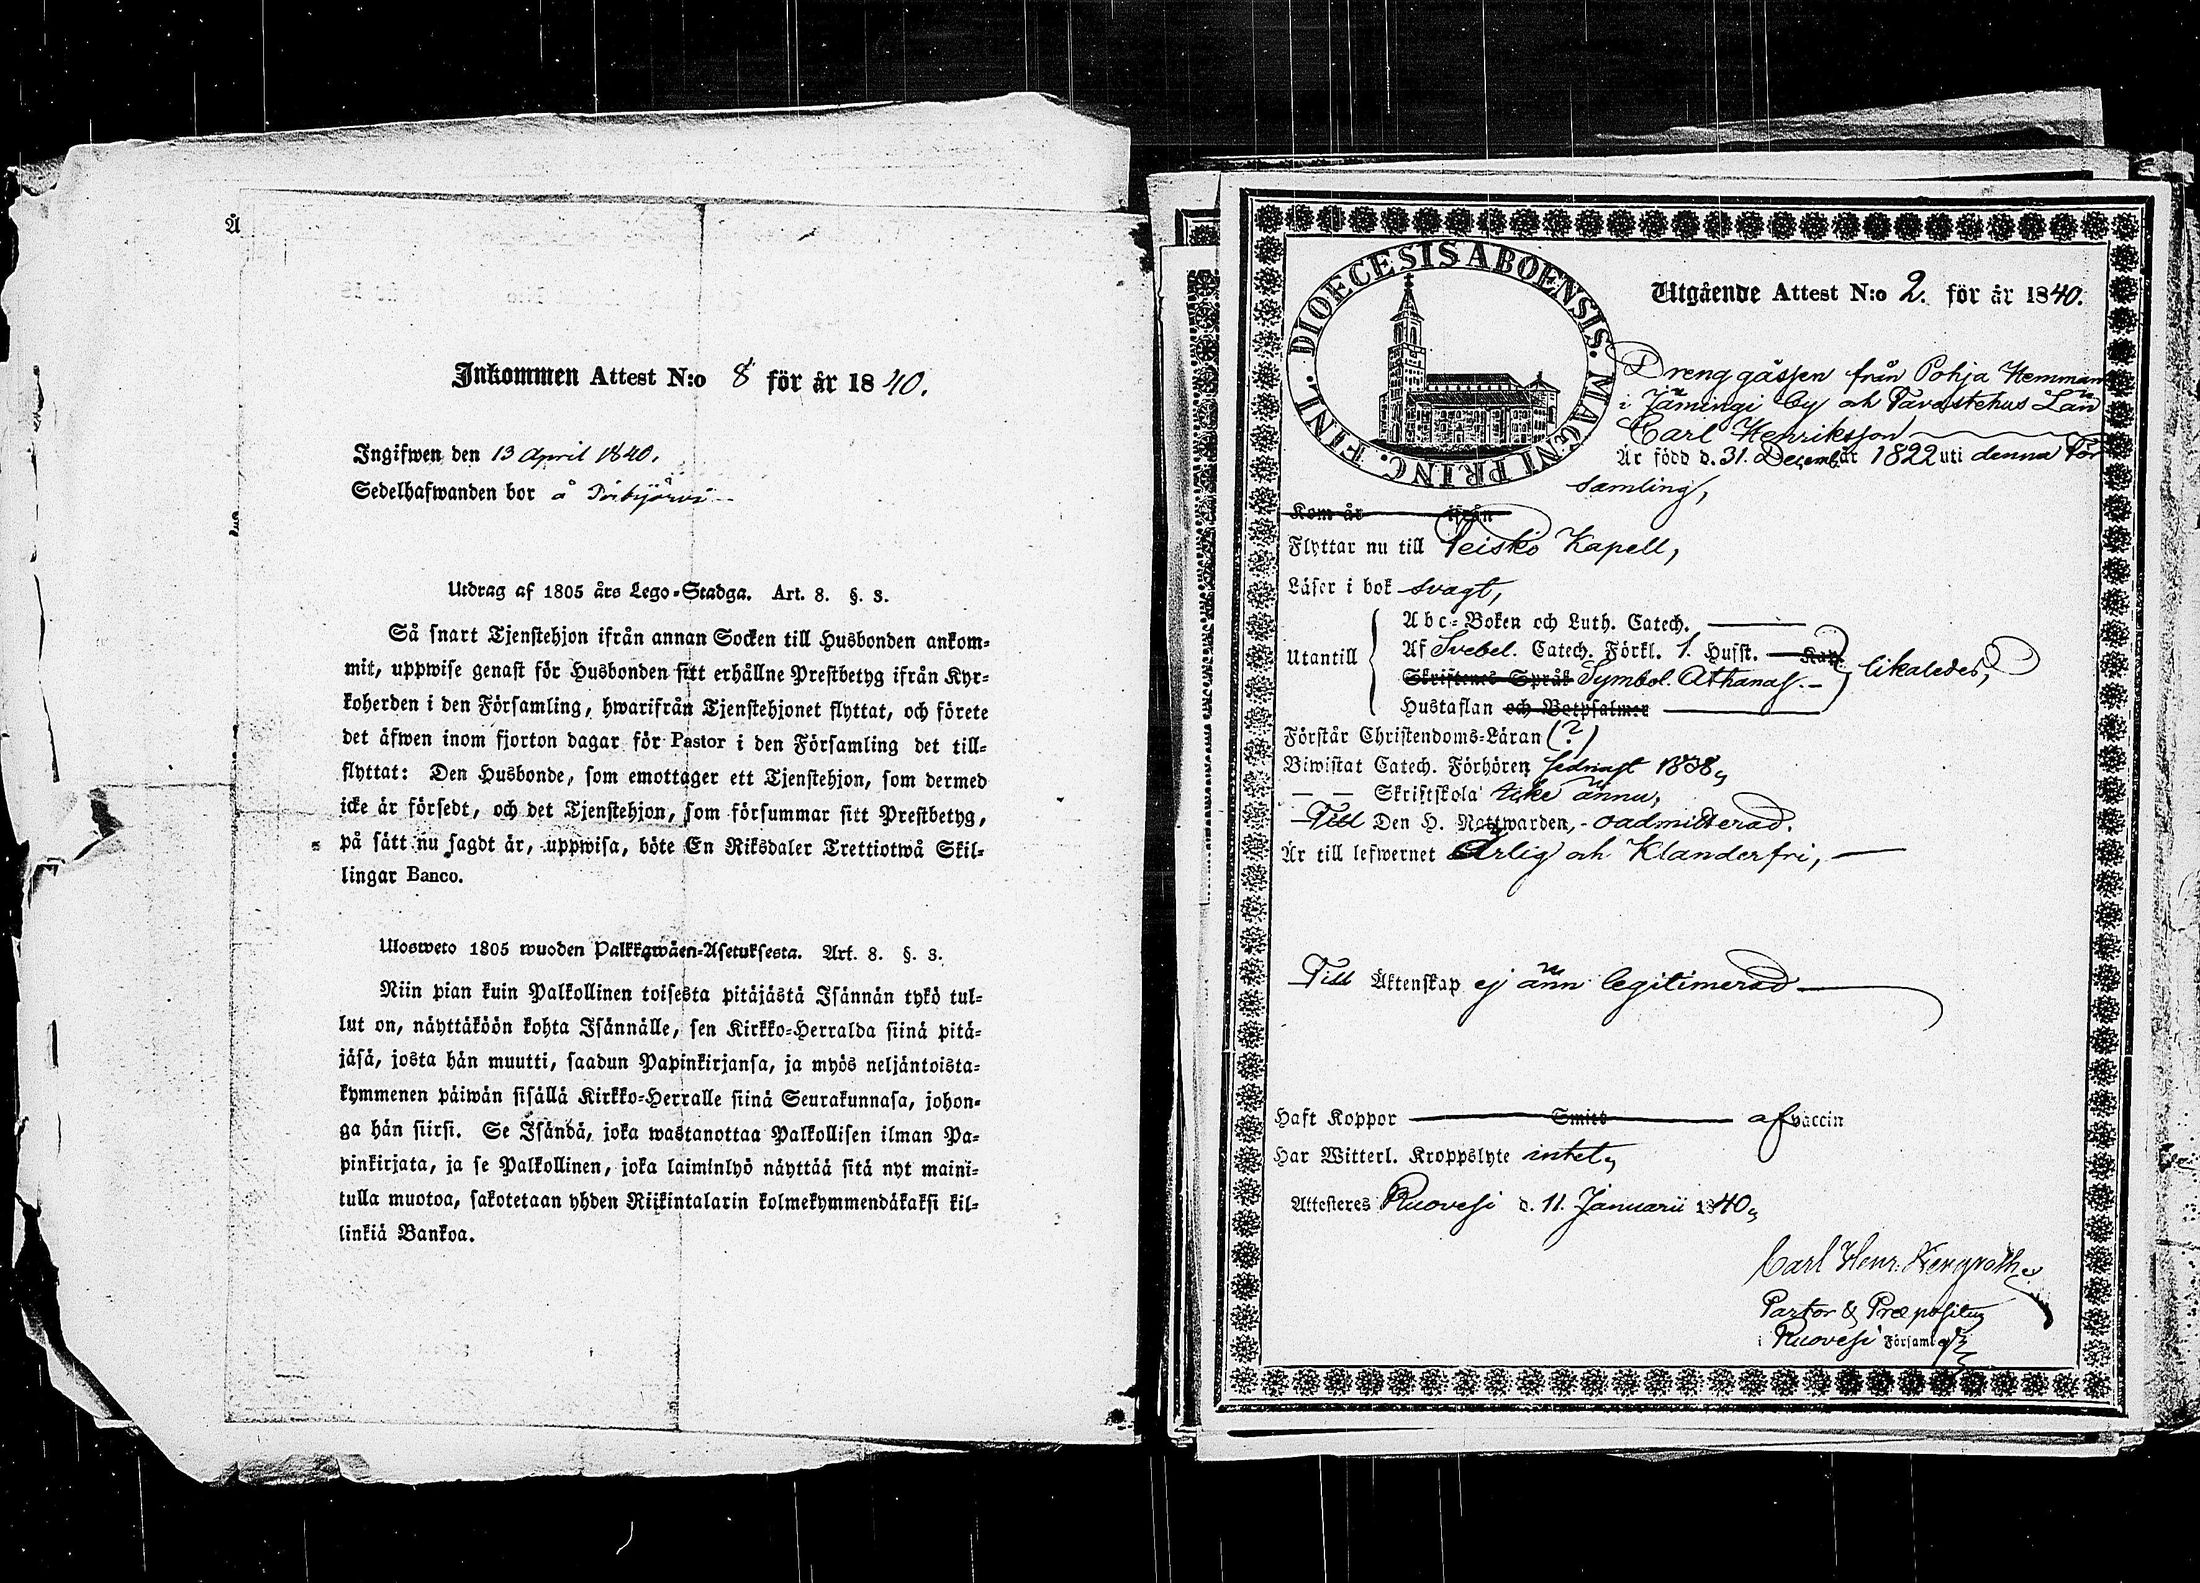 Å
Inkommen Attest N:o 8 för år 1840.
Ingifwen den 13 April 1840.
Sedelhafwanden bor å
Utdrag af 1805 års Lego-Stadga. Art. 8. §. 3.
Så snart Tjenstehjon ifrån annan Socken till Husbonden ankom-
mit, uppwise genast för Husbonden sitt erhållne Prestbetyg ifrån Kyr-
koherden i den Församling, hwarifrån Tjenstehjonet flyttat, och förete
det äfwen inom fjorton dagar för Pastor i den Församling det till-
flyttat: Den Husbonde, som emottager ett Tjenstehjon, som dermed
icke är försedt, och det Tjenstehjon, som försummar sitt Prestbetyg,
på sätt nu sagdt är, uppwisa, böte En Riksdaler Trettiotwå Skil-
lingar Banco.
Ulosweto 1805 wuoden Palkkawäen-Asetuksesta. Art. 8. §. 3.
Niin pian kuin Palkollinen toisesta pitäjästä Isännän tykö tul-
lut on, näyttäköön kohta Isännälle, sen Kirkko-Herralda siinä pitä-
jäsä, josta hän muutti, saadun Papinkirjansa, ja myös neljäntoista-
kymmenen päiwän sisällä Kirkko-Herralle siinä Seurakunnasa, johon-
ga hän siirsi. Se Isändä, joka wastanottaa Palkollisen ilman Pa-
pinkirjata, ja se Palkollinen, joka laiminlyö näyttää sitä nyt maini-
tulla muotoa, sakotetaan yhden Riikintalarin kolmekymmendäkaksi kil-
linkiä Bankoa.
DIOECESIS ABOENSIS. MAGNI PRINC. FINL.
Utgående Attest N:o 2. för år 1840.
Drenggåssen från Pohja Hemman
i Jäminngi by och Tavastehus Län
Carl Henriksson
Är född d. 31. December 1822 uti denna För
samling,
Kom år ifrån
Flyttar nu till Teisko Kapell,
Läser i bok svagt,
Utantill
Abc-Boken och Luth. Catech.
Af Svebel. Catech. Förkl. 1. Husst. Kap.
Skriftenes Språk Symbol. Athanas.
Hustaflan och Botpsalmer
likaledes,
Förstår Christendoms-Läran (?)
Biwistat Catech. Förhören sednast 1838,
— — Skriftskola icke ännu,
Till Den H. Nattwarden, oadmitterad.
Är till lefwernet Ärlig och Klanderfri,
Till Äktenskap ej änn legitimerad
Haft Koppor Smitt af vaccin
Har Witterl. Kroppslyte intet,
Attesteres Ruovesi d. 11. Januarii 1840,
Carl Henr.
Pastor & Præpositus
i Ruovesi Församl